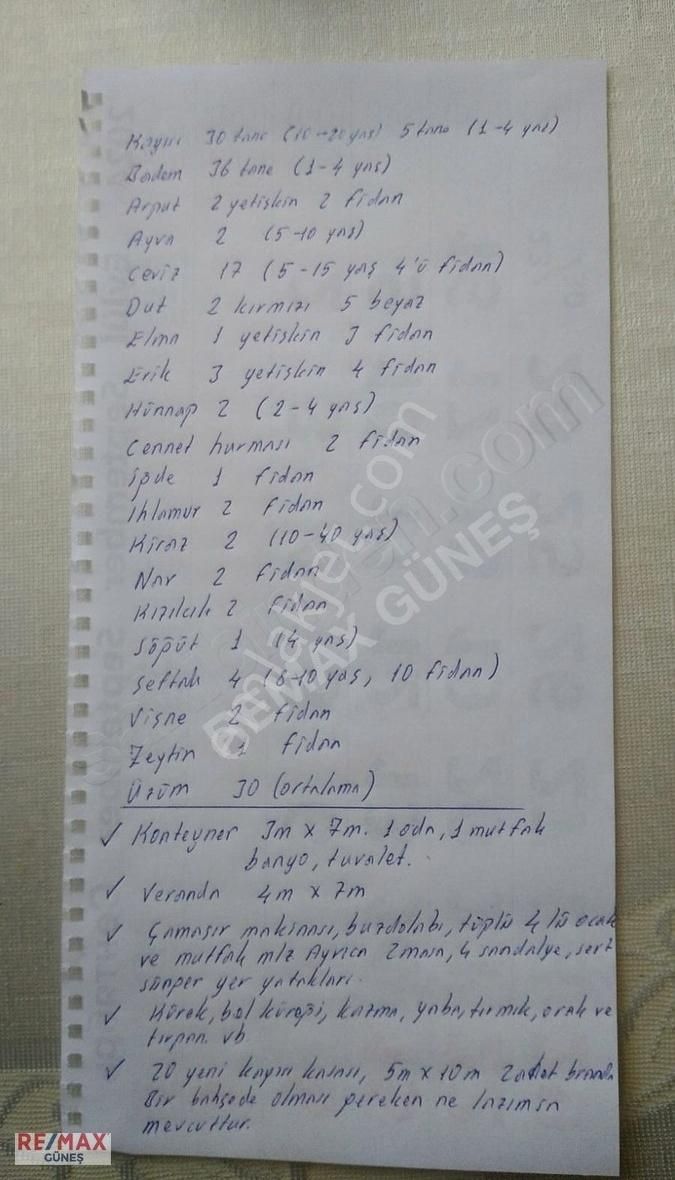 Kayısı 30 tane (10-20 yaş) 5 tane (1-4 yaş)
Badem 36 tane (1-4 yaş)
Armut 2 yetişkin 2 fidan
Ayva 2 (5-10 yaş)
Ceviz 17 (5-15 yaş 4'ü fidan)
Dut 2 kırmızı 5 beyaz
Elma 1 yetişkin 3 fidan
Erik 3 yetişkin 4 fidan
Hünnap 2 (2-4 yaş)
Cennet hurması 2 fidan
İğde 1 fidan
Ihlamur 2 fidan
Kiraz 2 (10-40 yaş)
Nar 2 fidan
Kızılcık 2 fidan
Söğüt 1 (4 yaş)
Şeftali 4 (6-10 yaş, 10 fidan)
Vişne 2 fidan
Zeytin 1 fidan
Üzüm 30 (ortalama)
✓ Konteyner 3m x 7m. 1 oda, 1 mutfak
banyo, tuvalet.
✓ Veranda 4m x 7m
✓ Çamaşır makinası, buzdolabı, tüplü 4 lü ocak
ve mutfak mlz Ayrıca 2 masa, 4 sandalye, sert
sünger yer yatakları.
✓ Kürek, bel küreği, kazma, yaba, tırmık, orak ve
tırpan. vb
✓ 20 yeni kayısı kasası, 5m x 10m 2 adet branda
Bir bahçede olması gereken ne lazımsa
mevcuttur.
emlakjet.com
RE/MAX GÜNEŞ
RE/MAX
GÜNEŞ